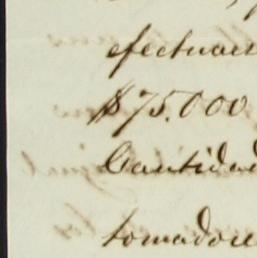 efectuar
$75.000
Cantidad
tomadore